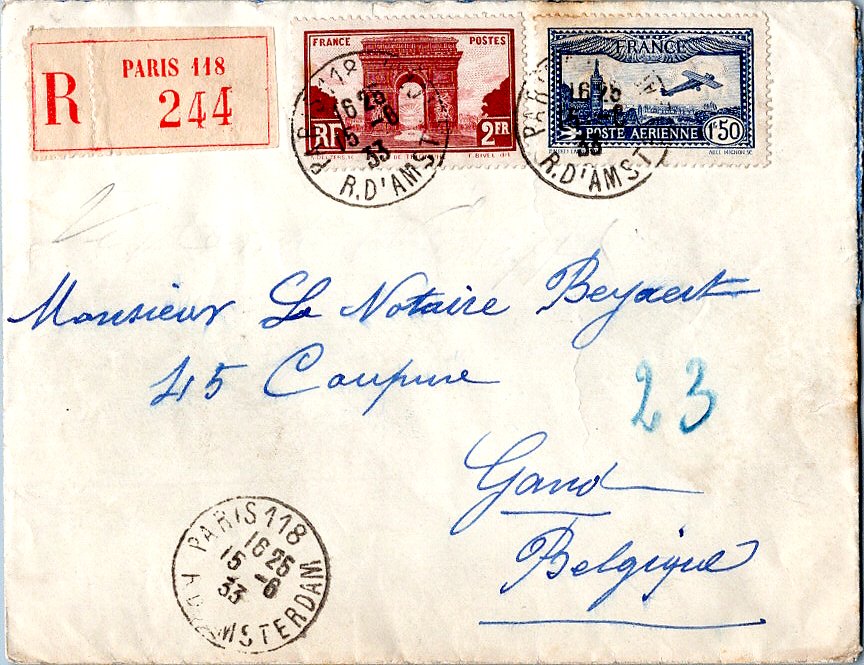 R
PARIS 118
244
FRANCE POSTES
RF 2FR
PARIS 118
16 25
15 -6
33
R.D'AMST
FRANCE
POSTE AERIENNE 1F50
16 25
15 -6
33
R.D'AMST
Monsieur Le Notaire Beyaert
45 Coupure
23
Gand
Belgique
PARIS 118
16 25
15 -6
33
R.D'AMSTERDAM